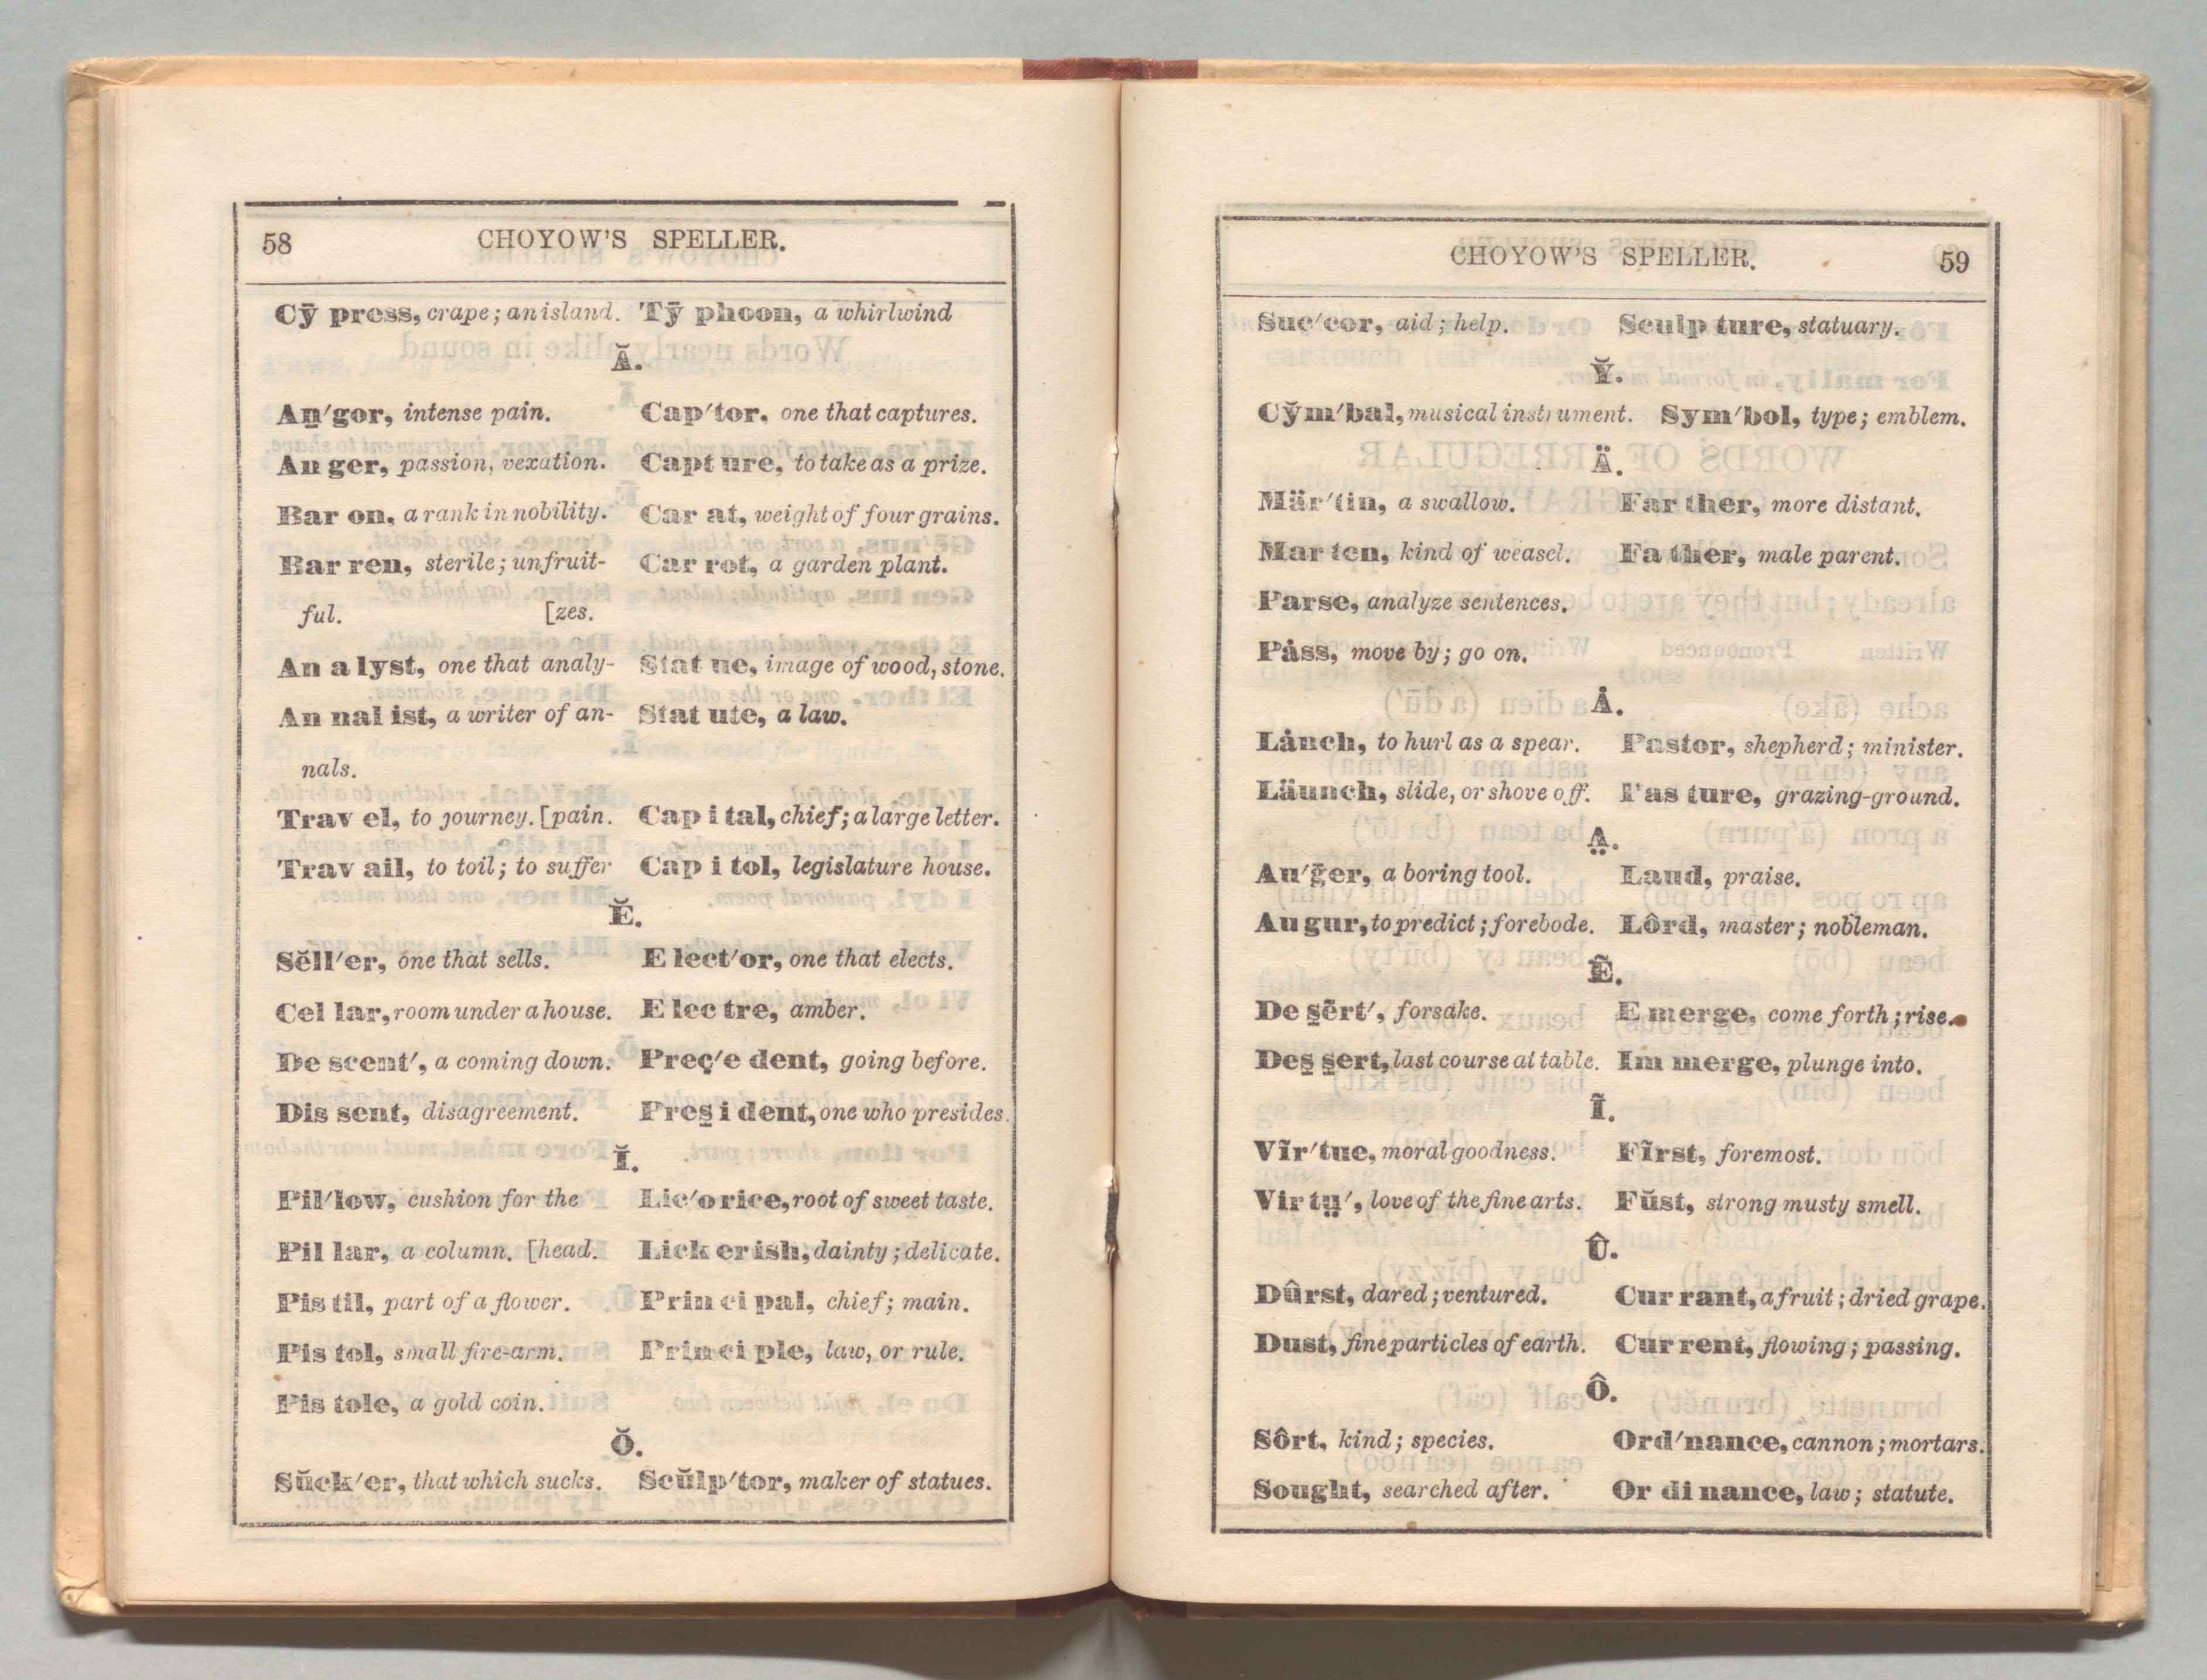 58 CHOYOW'S SPELLER.
Cȳ press, crape; an island. Tȳ phoon, a whirlwind
Ă.
An̲'gor, intense pain. Cap'tor, one that captures.
An ger, passion, vexation. Capt ure, to take as a prize.
Bar on, a rank in nobility. Car at, weight of four grains.
Bar ren, sterile; unfruit- Car rot, a garden plant.
ful. [zes.
An a lyst, one that analy- Stat ue, image of wood, stone.
An nal ist, a writer of an- Stat ute, a law.
nals.
Trav el, to journey. [pain. Cap i tal, chief; a large letter.
Trav ail, to toil; to suffer Cap i tol, legislature house.
Ĕ.
Sĕll'er, one that sells. E lect'or, one that elects.
Cel lar, room under a house. E lec tre, amber.
De scent', a coming down. Preç'e dent, going before.
Dis sent, disagreement. Pres̱ i dent, one who presides.
Ĭ.
Pil'low, cushion for the Lic'o rice, root of sweet taste.
Pil lar, a column. [head. Lick er ish, dainty; delicate.
Pis til, part of a flower. Prin ci pal, chief; main.
Pis tol, small fire-arm. Prin ci ple, law, or rule.
Pis tole, a gold coin.
Ŏ.
Sŭck'er, that which sucks. Scŭlp'tor, maker of statues.
CHOYOW'S SPELLER. 59
Suc'cor, aid; help. Sculp ture, statuary.
Y̆.
Cy̆m'bal, musical instrument. Sym'bol, type; emblem.
Ä.
Mär'tin, a swallow. Far ther, more distant.
Mar ten, kind of weasel. Fa ther, male parent.
Parse, analyze sentences.
Pȧss, move by; go on.
Ȧ.
Lȧnch, to hurl as a spear. Pastor, shepherd; minister.
Läunch, slide, or shove off. Pas ture, grazing-ground.
A̤.
Au'ḡer, a boring tool. Laud, praise.
Au gur, to predict; forebode. Lôrd, master; nobleman.
Ẽ.
De s̱ẽrt', forsake. E merge, come forth; rise.
Des̱ s̱ert, last course at table. Im merge, plunge into.
Ĩ.
Vĩr'tue, moral goodness. Fĩrst, foremost.
Vir tṳ', love of the fine arts. Fŭst, strong musty smell.
Û.
Dûrst, dared; ventured. Cur rant, a fruit; dried grape.
Dust, fine particles of earth. Cur rent, flowing; passing.
Ô.
Sôrt, kind; species. Ord'nance, cannon; mortars.
Sought, searched after. Or di nance, law; statute.